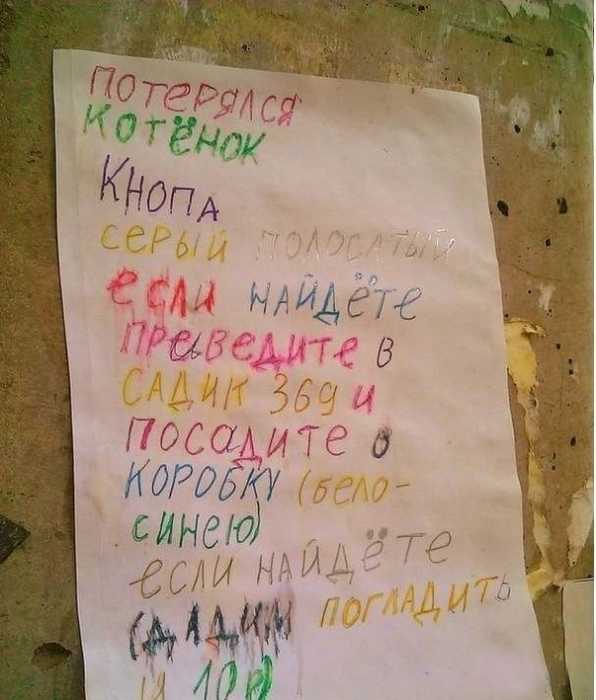 ПОТЕРЯЛСЯ
КОТЁНОК
КНОПА
СЕРЫЙ ПОЛОСАТЫЙ
если НАЙДЁТЕ
ПРЕВЕДИТЕ В
САДИК 369 и
ПОСАДИТЕ О
КОРОБКУ (бело-
синею)
если НАЙДЁТЕ
ДАДИМ ПОГЛАДИТЬ
И 10р